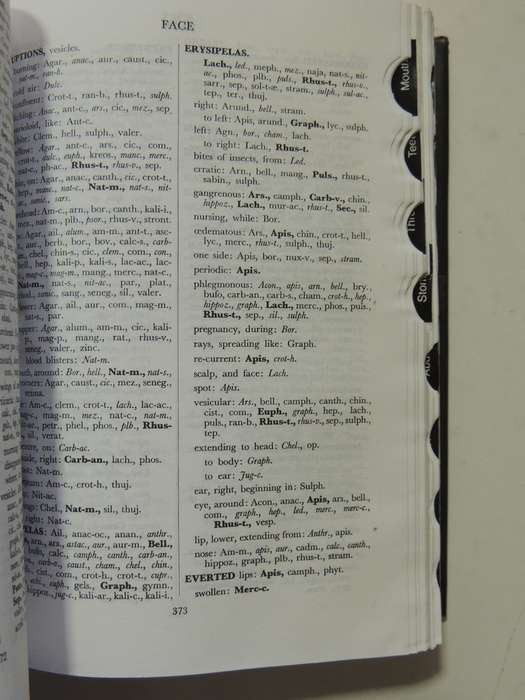 FACE
vesicles.
burning: Agar., anac., aur., caust., cic.,
nat-m., ran-h.
cold air: Dulc.
confluent: Crot-t., ran-b., rhus-t., sulph.
itching: Anac., ant-c., ars., cic., mez., sep.
like: Ant-c.
Clem., hell., sulph., valer.
Agar., ant-c., ars., cic., com.,
crot-t., dulc., euph., kreos., manc., merc.,
nat-c., ph-ac., Rhus-t., rhus-v., sep.
on: Agar., anac., canth., cic., crot-t.,
hep., manc., nat-c., Nat-m., nat-s., nit-
ac., samic., sars.
forehead: Am-c., arn., bor., canth., kali-i.,
mez., nat-m., plb., psor., rhus-v., stront.
Agar., ail., alum., am-m., ant-t., asc-
aur., berb., bor., bov., calc-s., carb-
chel., chin-s., cic., clem., com., con.,
hell., hep., kali-p., kali-s., lac-ac., lac-
mag-c., mag-m., mang., merc., nat-c.,
Nat-m., nat-s., nit-ac., par., plat.,
samic., sang., seneg., sil., valer.
lower: Agar., ail., aur., com., mag-m.,
sat-s., par.
upper: Agar., alum., am-m., cic., kali-
mag-p., mang., rat., rhus-v.,
seneg., valer., zinc.
blood blisters: Nat-m.
mouth, around: Bor., hell., Nat-m., nat-s.,
corners: Agar., caust., cic., mez., seneg.,
Am-c., clem., crot-t., lach., lac-ac.,
mag-c., mag-m., mez., nat-c., nat-m.,
nit-ac., petr., phel., phos., plb., Rhus-
sil., verat.
on: Carb-ac.
side, right: Carb-an., lach., phos.
Nat-m.
Am-c., crot-h., thuj.
Nit-ac.
Chel., Nat-m., sil., thuj.
right: Nat-c.
Ail., anac-oc., anan., anthr.,
arn., ars., astac., aur., aur-m., Bell.,
bufo, calc., camph., canth., carb-an.,
carb-s., caust., cham., chel., chin.,
cist., com., crot-h., crot-t., cupr.,
euph., gels., Graph., gymn.,
hippoz., jug-c., kali-ar., kali-c., kali-i.,
ERYSIPELAS.
Lach., led., meph., mez., naja, nat-s., nit-
ac., phos., plb., puls., Rhus-t., rhus-v.,
sarr., sep., sol-t-æ., stram., sulph., sul-ac.,
tep., ter., thuj.
right: Arund., bell., stram.
to left: Apis, arund., Graph., lyc., sulph.
left: Agn., bor., cham., lach.
to right: Lach., Rhus-t.
bites of insects, from: Led.
erratic: Arn., bell., mang., Puls., rhus-t.,
sabin., sulph.
gangrenous: Ars., camph., Carb-v., chin.,
hippoz., Lach., mur-ac., rhus-t., Sec., sil.
nursing, while: Bor.
œdematous: Ars., Apis, chin., crot-t., hell.,
lyc., merc., rhus-t., sulph., thuj.
one side: Apis, bor., nux-v., sep., stram.
periodic: Apis.
phlegmonous: Acon., apis, arn., bell., bry.,
bufo, carb-an., carb-s., cham., crot-h., hep.,
hippoz., graph., Lach., merc., phos., puls.,
Rhus-t., sep., sil., sulph.
pregnancy, during: Bor.
rays, spreading like: Graph.
re-current: Apis, crot-h.
scalp, and face: Lach.
spot: Apis.
vesicular: Ars., bell., camph., canth., chin.,
cist., com., Euph., graph., hep., lach.,
puls., ran-b., Rhus-t., rhus-v., sep., sulph.,
tep.
extending to head: Chel., op.
to body: Graph.
to ear: Jug-c.
ear, right, beginning in: Sulph.
eye, around: Acon., anac., Apis, ars., bell.,
com., graph., hep., led., merc., merc-c.,
Rhus-t., vesp.
lip, lower, extending from: Anthr., apis.
nose: Am-m., apis, aur., cadm., calc., canth.,
hippoz., graph., plb., rhus-t., stram.
EVERTED lips: Apis, camph., phyt.
swollen: Merc-c.
373
Mouth
Teeth
Stom